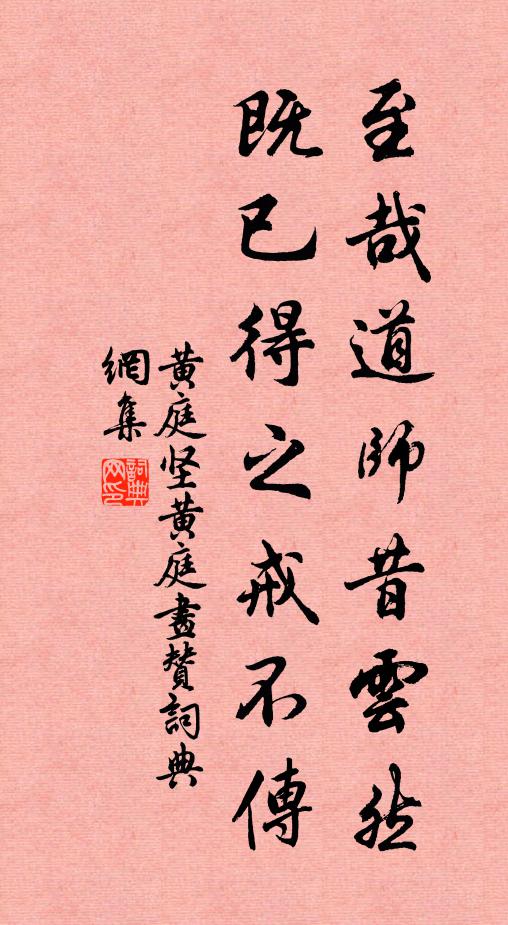 至哉道師昔雲然
既已得之戒不傳
黄庭坚黄庭畫贊詞典
網集
詞典网印